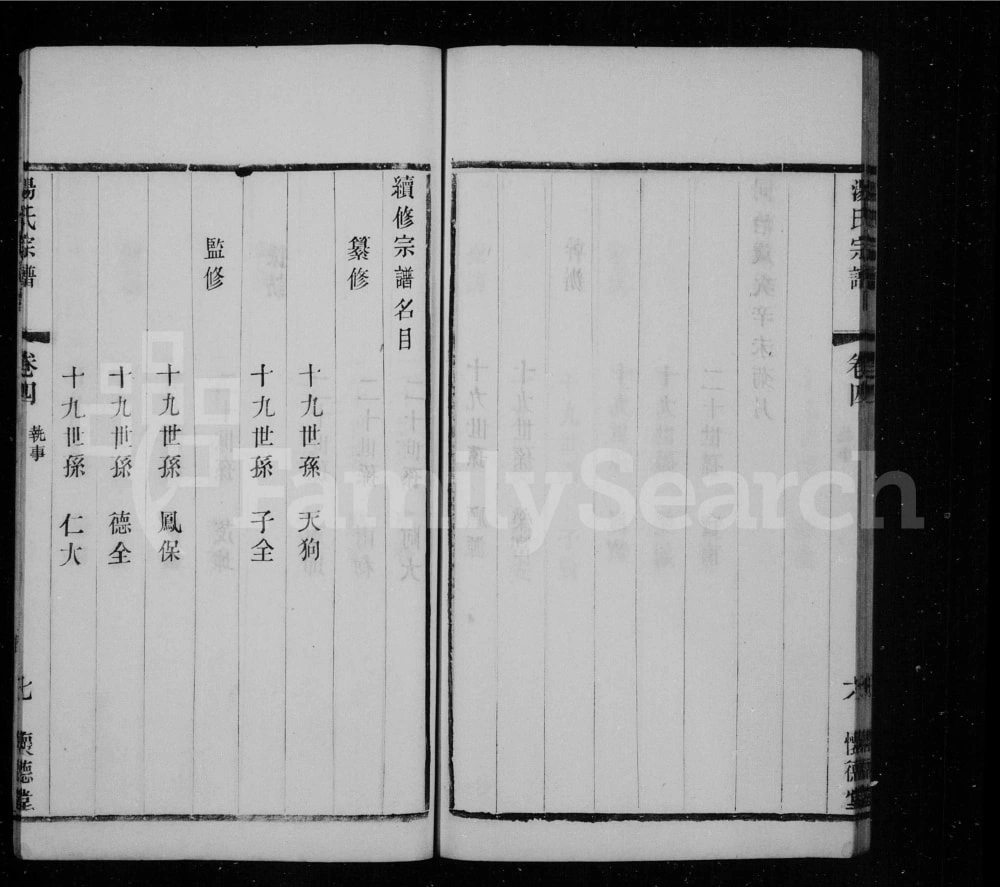 湯氏宗譜
卷四
六
懷德堂
續修宗譜名目
纂修
十九世孫 天狗
十九世孫 子全
監修
十九世孫 鳳保
十九世孫 德全
十九世孫 仁大
湯氏宗譜
卷四
執事
七
懷德堂
FamilySearch